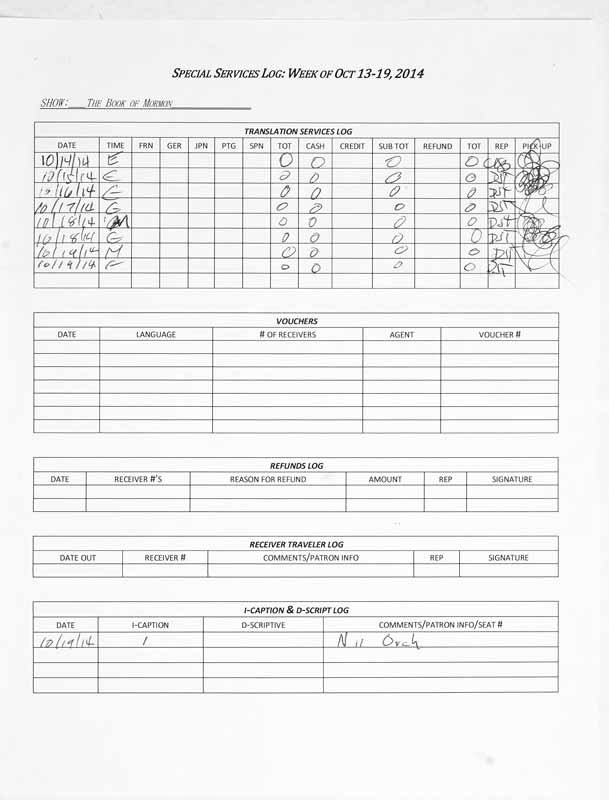 SPECIAL SERVICES LOG: WEEK OF OCT 13-19, 2014
SHOW: THE BOOK OF MORMON
TRANSLATION SERVICES LOG
DATE TIME FRN GER JPN PTG SPN TOT CASH CREDIT SUB TOT REFUND TOT REP PICK-UP
10/14/14 E 0 0 0 0
10/15/14 E 0 0 0 0 DST
10/16/14 E 0 0 0 0 DST
10/17/14 E 0 0 0 0 DST
10/18/14 M 0 0 0 0 DST
10/18/14 E 0 0 0 0 DST
10/19/14 M 0 0 0 0 DST
10/19/14 E 0 0 0 0 DST
VOUCHERS
DATE LANGUAGE # OF RECEIVERS AGENT VOUCHER #
REFUNDS LOG
DATE RECEIVER #'S REASON FOR REFUND AMOUNT REP SIGNATURE
RECEIVER TRAVELER LOG
DATE OUT RECEIVER # COMMENTS/PATRON INFO REP SIGNATURE
I-CAPTION & D-SCRIPT LOG
DATE I-CAPTION D-SCRIPTIVE COMMENTS/PATRON INFO/SEAT #
10/19/14 1 N 11 Orch